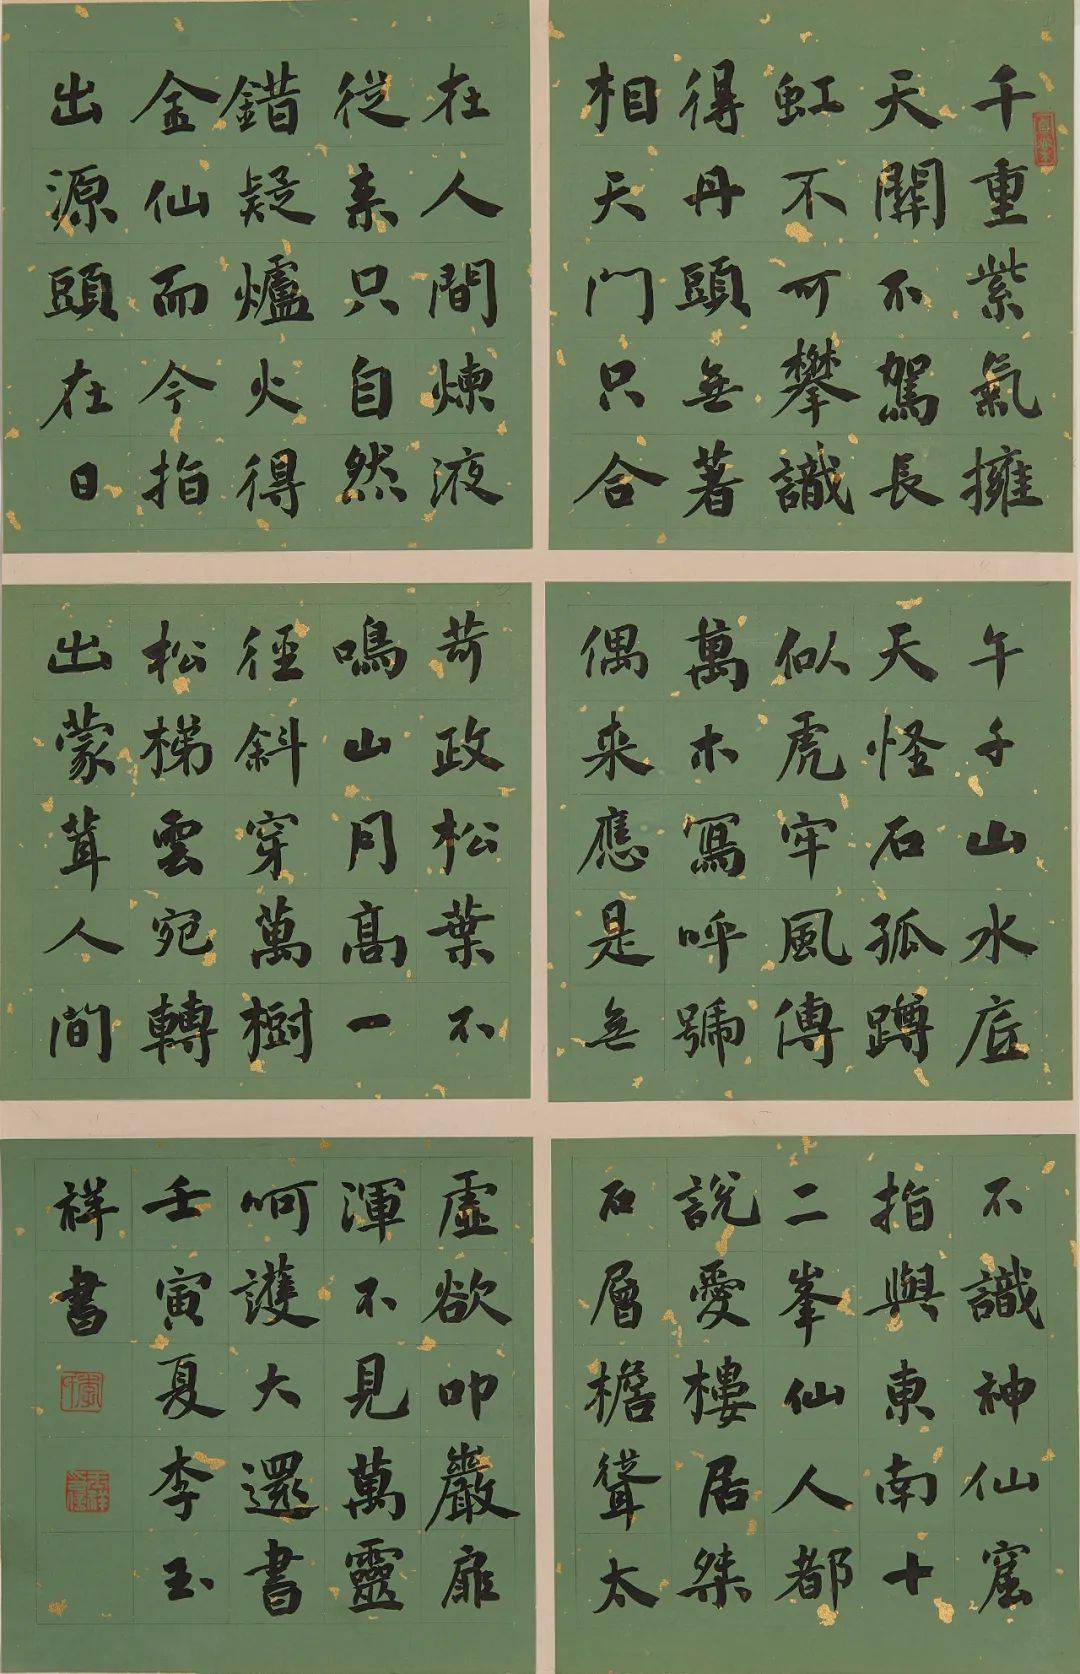 千重紫氣擁
天關不駕長
虹不可攀識
得丹頭無著
相天門只合
在人間煉液
從来只自然
錯疑爐火得
金仙而今指
出源頭在日
午子山水底
天怪石孤蹲
似虎牢風傳
萬木寫呼號
偶来應是無
苛政松葉不
鳴山月高一
徑斜穿萬樹
松梯雲宛轉
出蒙茸人間
不識神仙窟
指與東南十
二峯仙人都
說愛樓居桀
石層檐聳太
虛欲叩巖扉
渾不見萬靈
呵護大還書
壬寅夏李玉
祥書